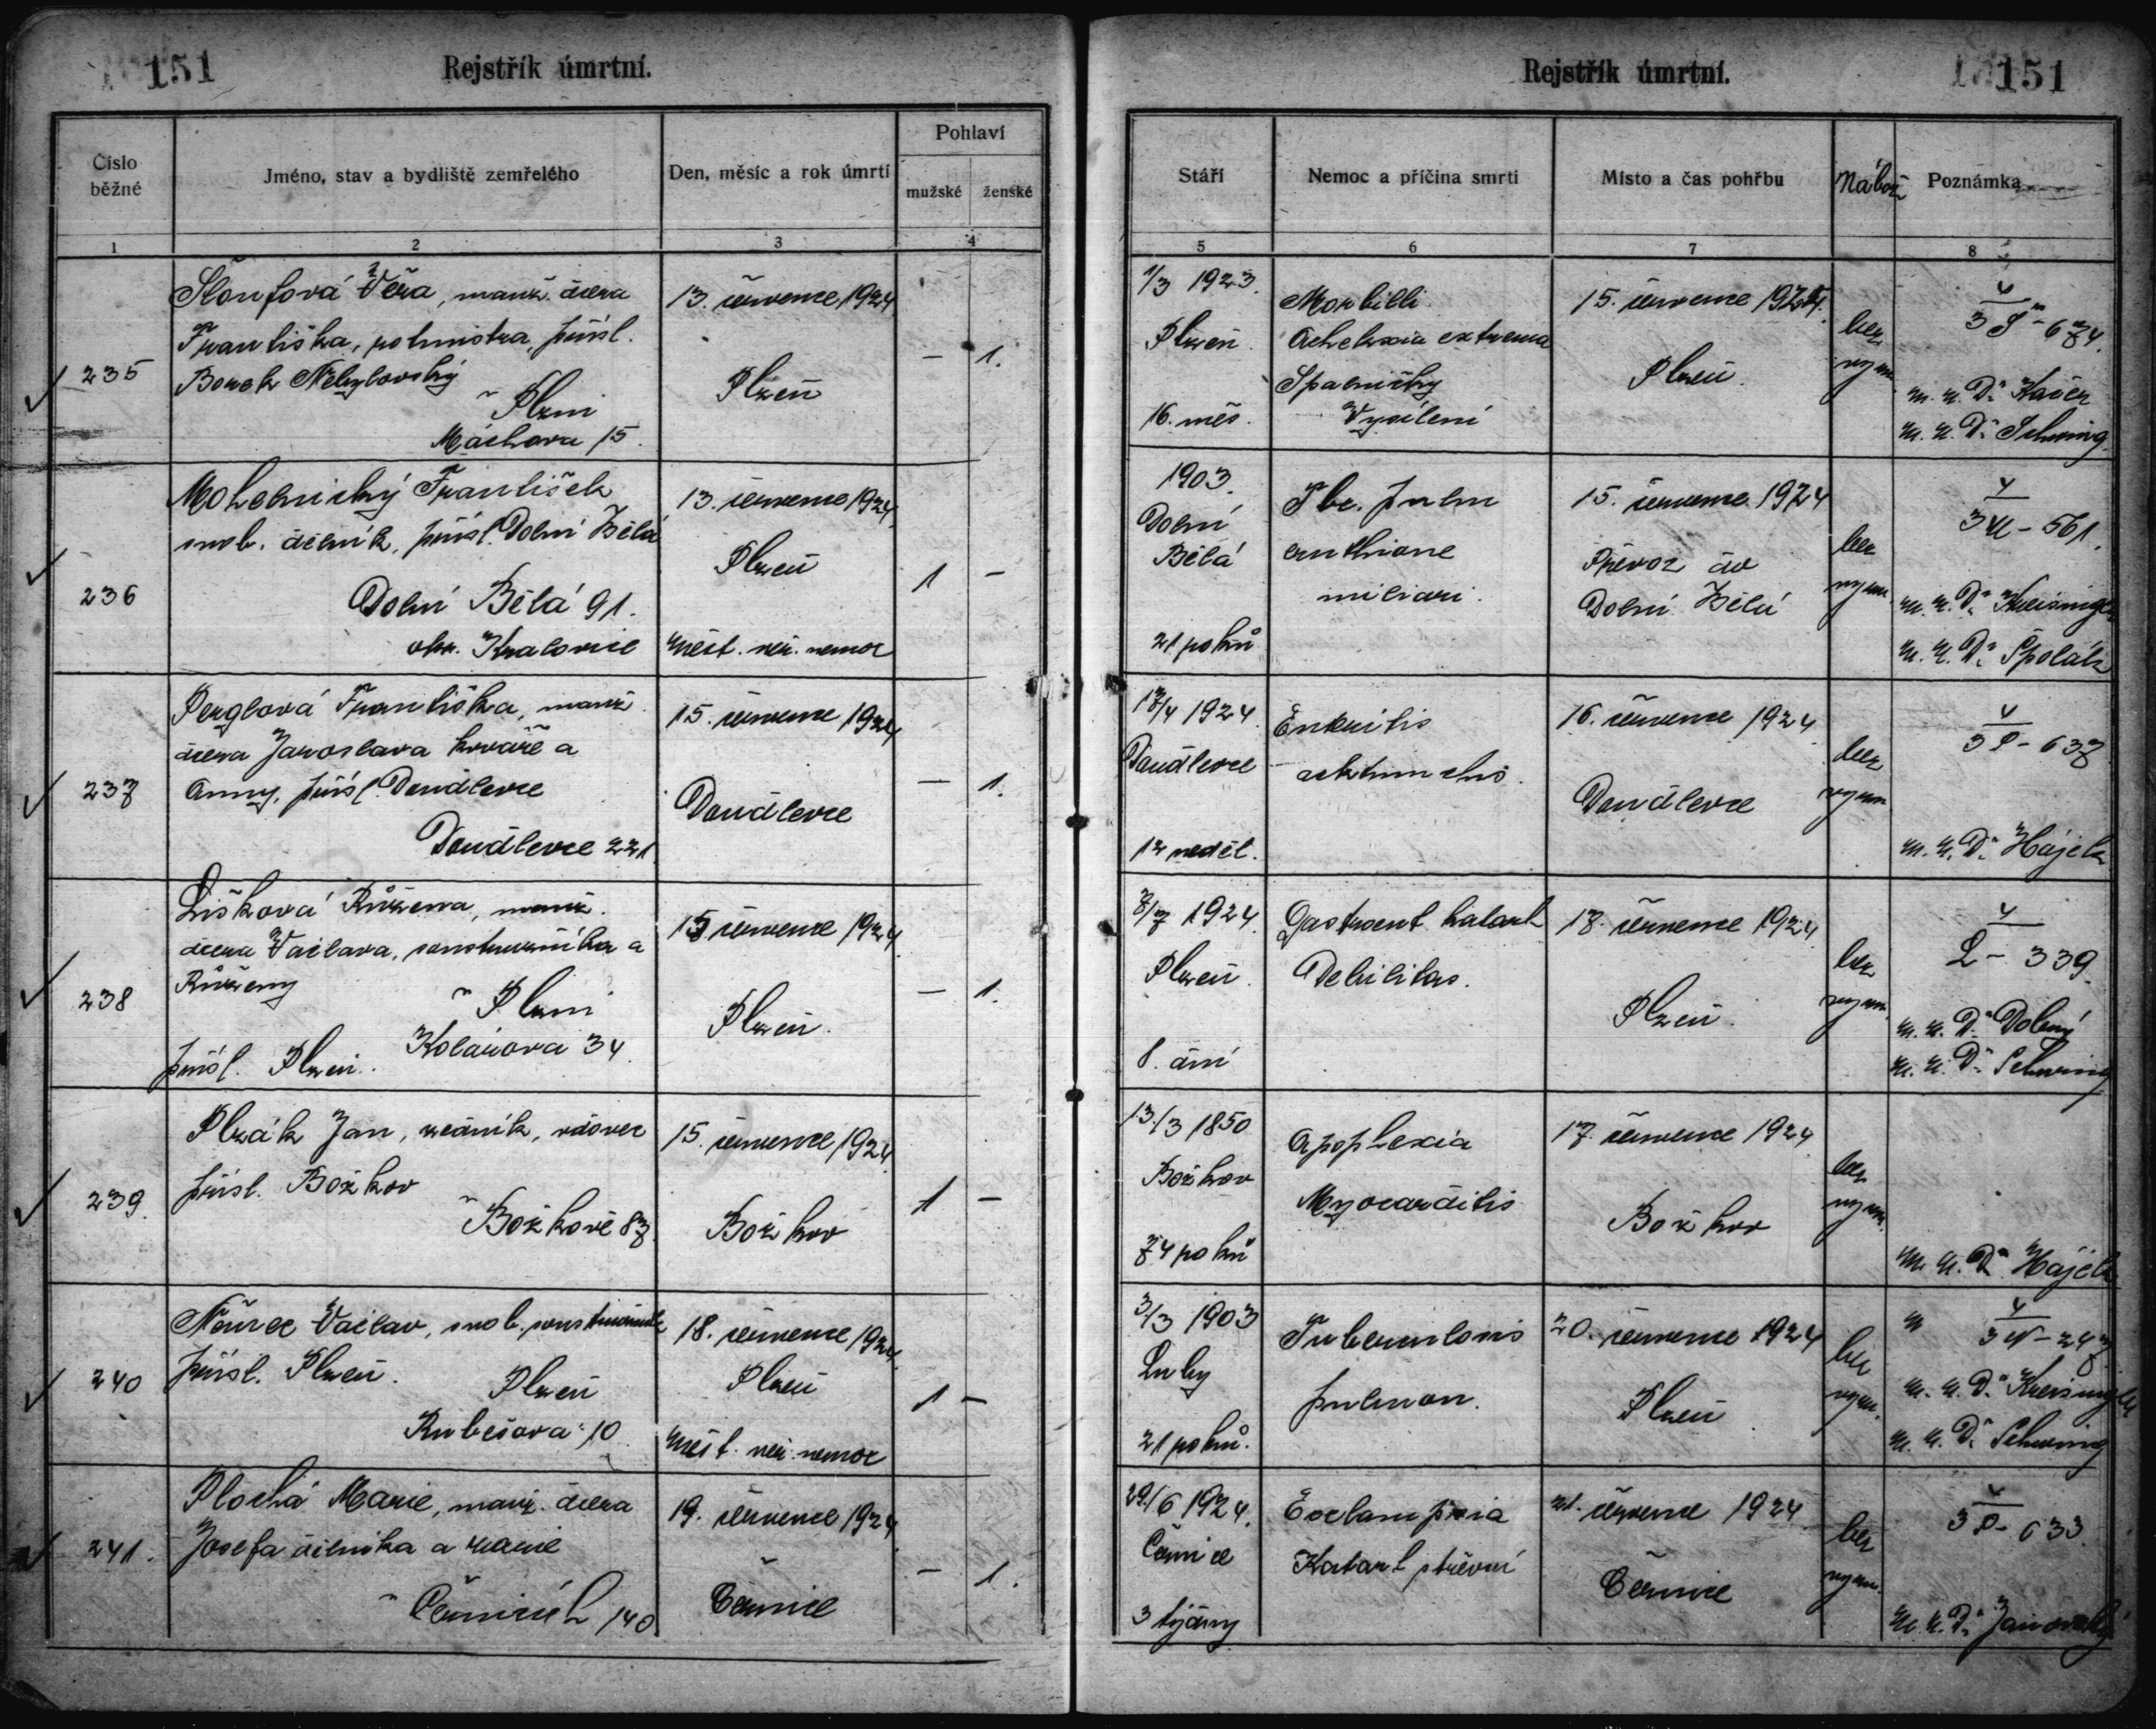 151
Rejstřík úmrtní.
Číslo běžné
Jméno, stav a bydliště zemřelého
Den, měsíc a rok úmrtí
Pohlaví
mužské
ženské
1
2
3
4
235
Šloufová Věra, manž. dcera
Františka, rotmistra, přísl.
Borek Nebylovský
v Plzni
Máchova 15.
13. července 1924
Plzeň
–
1.
236
František
svob. dělník, přísl. Dolní Bělá
Dolní Bělá 91.
okr. Kralovice
13. července 1924
Plzeň
měst. nemoc
1
–
237
Perglová Františka, manž.
dcera Jaroslava kováře a
Anny, přísl. Doudlevce
Doudlevce 221
15. července 1924
Doudlevce
–
1.
238
Lišková Růžena, manž.
dcera Václava, soustružníka a
Růženy
v Plzni
Kolárova 34
přísl. Plzeň.
15. července 1924
Plzeň.
–
1.
239.
Plzák Jan, zedník, vdovec
přísl. Božkov
v Božkově 87.
15. července 1924
Božkov
1
–
240
Václav, svob.
přísl. Plzeň.
Plzeň
Rubešova 10
18. července 1924
Plzeň
měst. nemoc
1
–
241.
Plochá Marie, manž. dcera
Josefa dělníka a Marie
v Černicích 140
19. července 1924
Černice
–
1.
Rejstřík úmrtní.
151
Stáří
Nemoc a příčina smrti
Místo a čas pohřbu
Nábož
Poznámka
5
6
7
8
1/3 1923.
Plzeň.
16. měs.
Morbilli
extrema
Spalničky
Vysílení
15. července 1924.
Plzeň.
bez
vyzn.
3 Š – 674.
m. u. Dr. Kačer
m. u. Dr. Schwing.
1903.
Dolní
Bělá
21 roků
Tbc. pulm
miliari.
15. července 1924
Převoz do
Dolní Bělá
bez
vyzn.
3 M – 561.
m. u. Dr. Kreisingr
m. u. Dr. Špolák
17/4 1924.
Doudlevce
12 neděl.
Enteritis
16. července 1924
Doudlevce
bez
vyzn.
3 P – 637
m. u. Dr. Hájek
7/7 1924.
Plzeň.
8. dní
Gastroent. katarh
Debilitas.
17. července 1924.
Plzeň.
bez
vyzn.
L – 339.
m. u. Dr. Dolený
m. u. Dr. Schwing
13./3 1850
Božkov
74 roků
Apoplexia
Myocarditis
17. července 1924
Božkov
bez
vyzn.
m. u. Dr. Hájek
3/3 1903
Luby
21 roků.
Tuberculosis
pulmon.
20. července 1924
Plzeň
bez
vyzn.
3 N – 247.
m. u. Dr. Kreisingr
m. u. Dr. Schwing
29./6 1924.
Černice
3 týdny
Eclampsia
Katarh střevní
21. července 1924
Černice
bez
vyzn.
3 P – 633.
m. u. Dr. Janovský